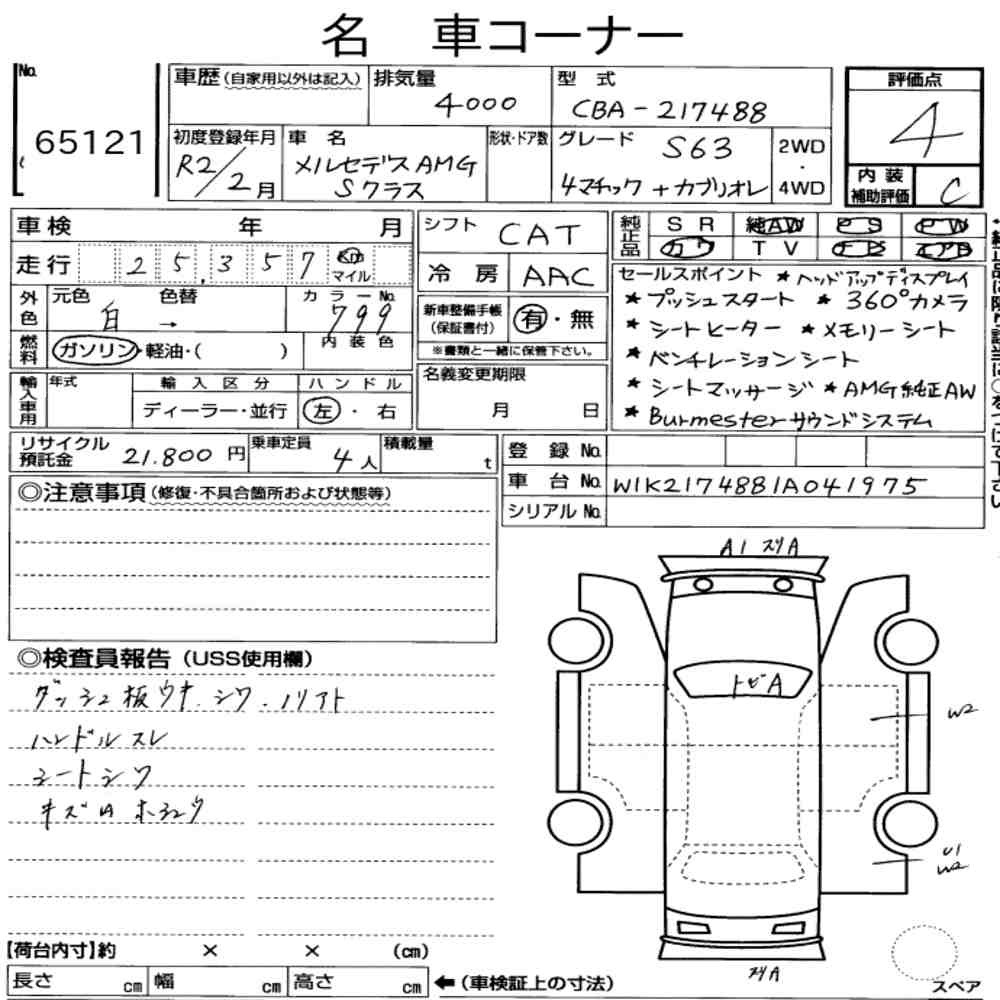 名 車コーナー
No.
65121
車歴(自家用以外は記入)
排気量
4000
型 式
CBA-217488
評価点
4
初度登録年月
R2/2月
車 名
メルセデスAMG
Sクラス
形状・ドア数
グレード
S63
4マチック+カブリオレ
2WD
・
4WD
内 装
補助評価
C
車検 年 月
走行
25,357
Km
マイル
シフト
CAT
冷 房
AAC
純正品
SR 純AW PS PW
カワ TV
外色
元色
白
色替
→
カラーNo.
799
燃料
ガソリン・軽油・( )
内 装 色
新車整備手帳
(保証書付)
有・無
※書類と一緒に保管下さい。
セールスポイント ★ヘッドアップディスプレイ
★プッシュスタート ★360°カメラ
★シートヒーター ★メモリーシート
★ベンチレーションシート
★シートマッサージ ★AMG純正AW
★Burmesterサウンドシステム
輸入車用
年式
輸 入 区 分
ディーラー・並行
ハ ン ド ル
左・右
名義変更期限
月 日
リサイクル
預託金
21.800円
乗車定員
4人
積載量
t
登 録 No.
車 台 No.
W1K2174881A041975
シリアル No.
◎注意事項(修復・不具合箇所および状態等)
A1 スリA
トビA
W2
U1
W2
スリA
スペア
◎検査員報告(USS使用欄)
ダッシュ板ウキ.シワ.ノリアト
ハンドルスレ
シートシワ
キズAホシュウ
【荷台内寸】約 × × (cm)
長さ cm 幅 cm 高さ cm
←(車検証上の寸法)